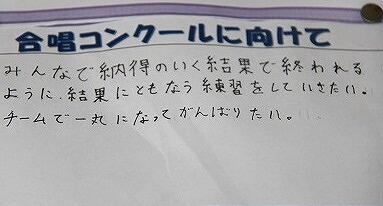 合唱コンクールに向けて
みんなで納得のいく結果で終われる
ように、結果にともなう練習をしていきたい。
チームで一丸になってがんばりたい。